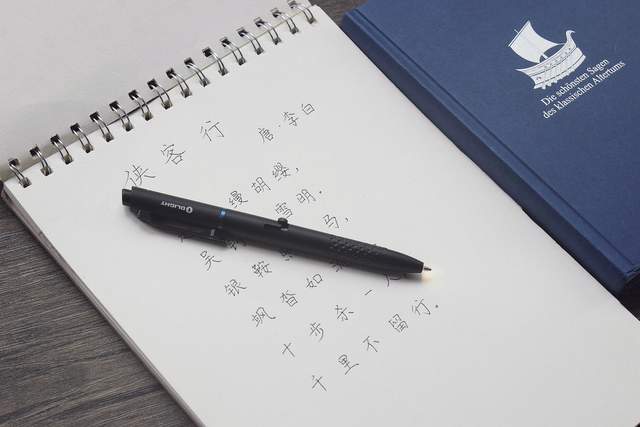 侠客行
唐·李白
缦胡缨,
吴 雪明.
银鞍 马,
飒沓如
十步杀一人
千里不留行。
OLIGHT
Die schönsten Sagen
des klassischen Altertums